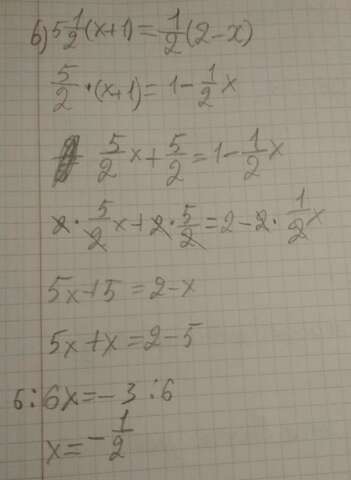 б) 5 1/2 (x+1) = 1/2 (2-x)
5/2 · (x+1) = 1 - 1/2 x
5/2 x + 5/2 = 1 - 1/2 x
2 · 5/2 x + 2 · 5/2 = 2 - 2 · 1/2 x
5x+5 = 2-x
5x+x = 2-5
6: 6x = -3 :6
x = - 1/2